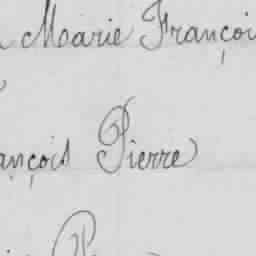 Marie Françoi
ançois Pierre